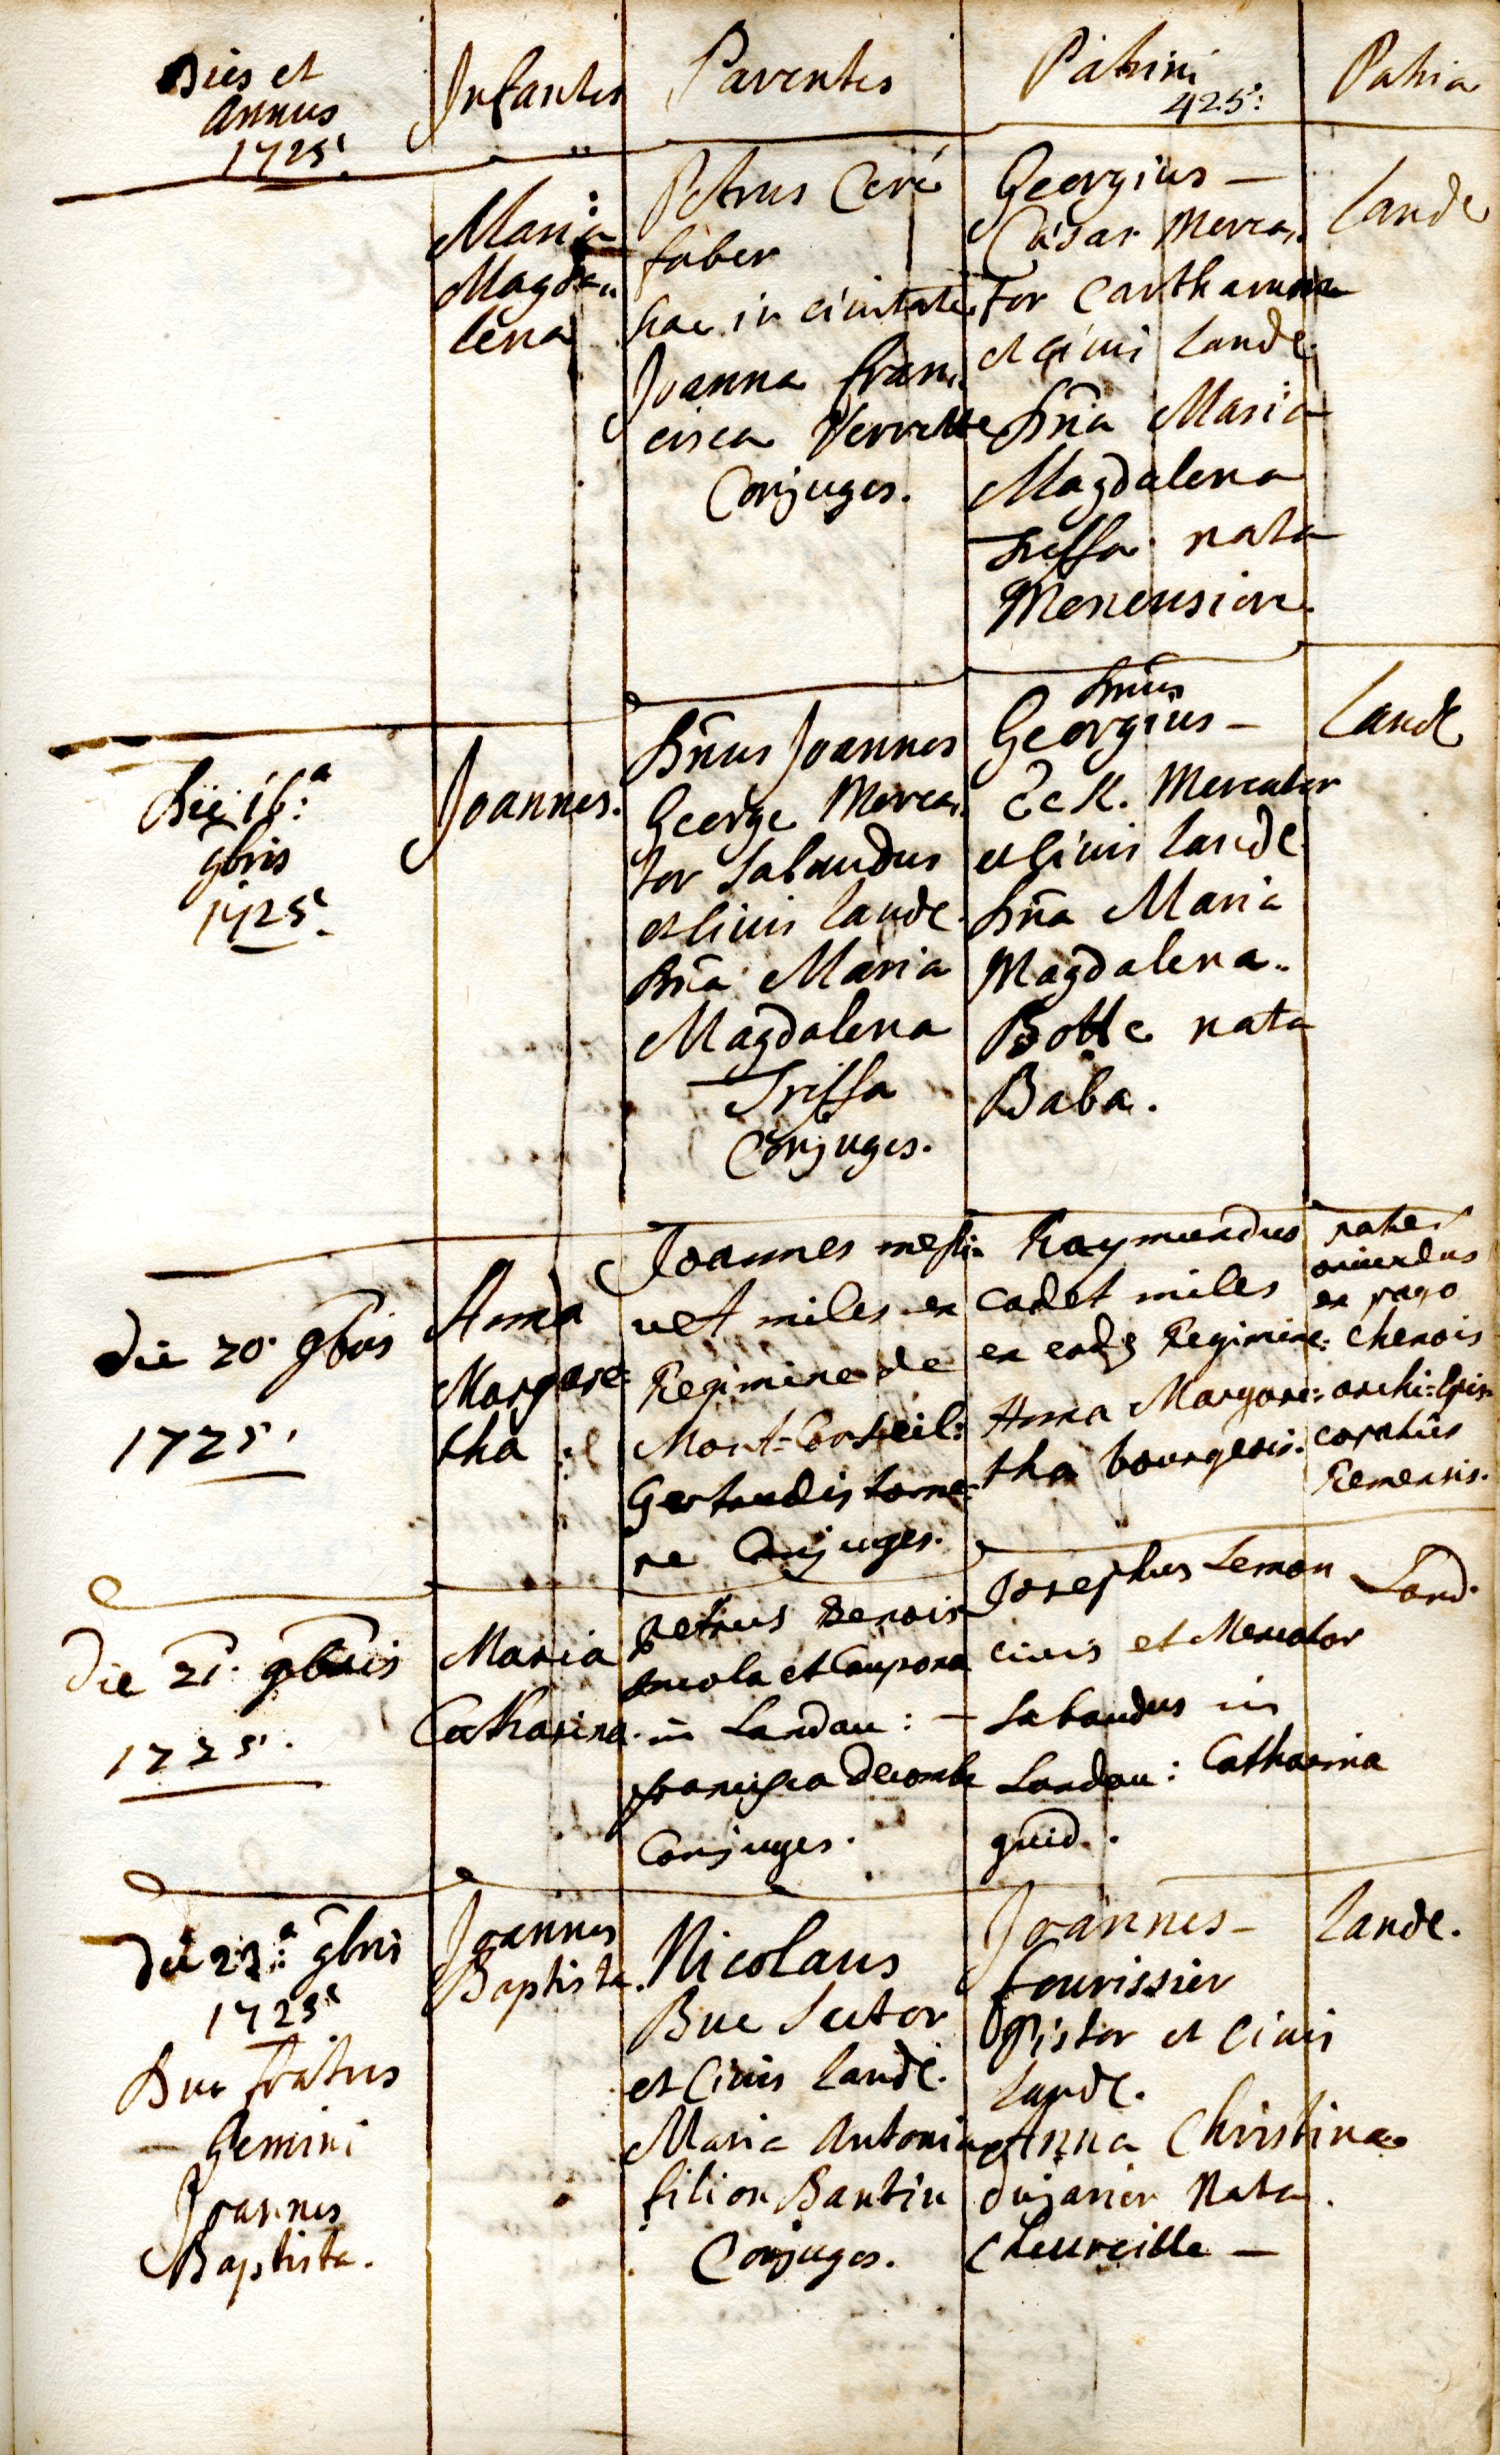 Dies et
annus
1725.
Infantes
Parentes
Patrini
425:
Patria
Maria
Magda„
lena
Petrus Ceré
faber
hac in civitate
Joanna fran„
cisca Verrette
Conjuges.
Georgius —
Cæsar Merca„
tor
et civis Lande.
Dña Maria
Magdalena
Trissa nata
Menension.
Lande
Die 16:ᵃ
9bris
1725.
Joannes.
Dñus Joannes
George Merca„
tor Sabaudus
et Civis Lande.
Dña Maria
Magdalena
Trissa
Conjuges.
Dnus
Georgius —
Mercator
et Civis Lande.
Dña Maria
Magdalena„
Botte nata
Baba.
Lande
die 20. 9bris
1725.
Anna
Margare:
tha
Joannes
miles ex
Regimine de
Mont-Conseil:
Gertrudis Lorne:
re Conjuges.
Raymundus
cadet miles
ex eod Regimine:
Anna Margare:
tha bourgeois.
pater
oriundus
ex pago
chenois
archi-Epis
copatûs
Remensis.
die 21. 9bris
1725.
Maria
Catharina.
Petrus Benois
incola et Caupona
in Landau: —
francisca Decombe
Conjuges.
Josephus Lemon
civis et Mercator
Sabaudus in
Landau: Catharina
guid.
Land.
Die 23.ᵃ 9bris
1725
Duo fratres
— Gemini
Joannes
Baptista.
Joannes
Baptista.
Nicolaus
Buc Sutor
et Civis Lande.
Maria Antonia
filion Bantin
Conjuges.
Joannes —
fourissier
Pistor et Civis
Lande.
Anna Christina
dujarier Nata.
Cheureille —
Lande.